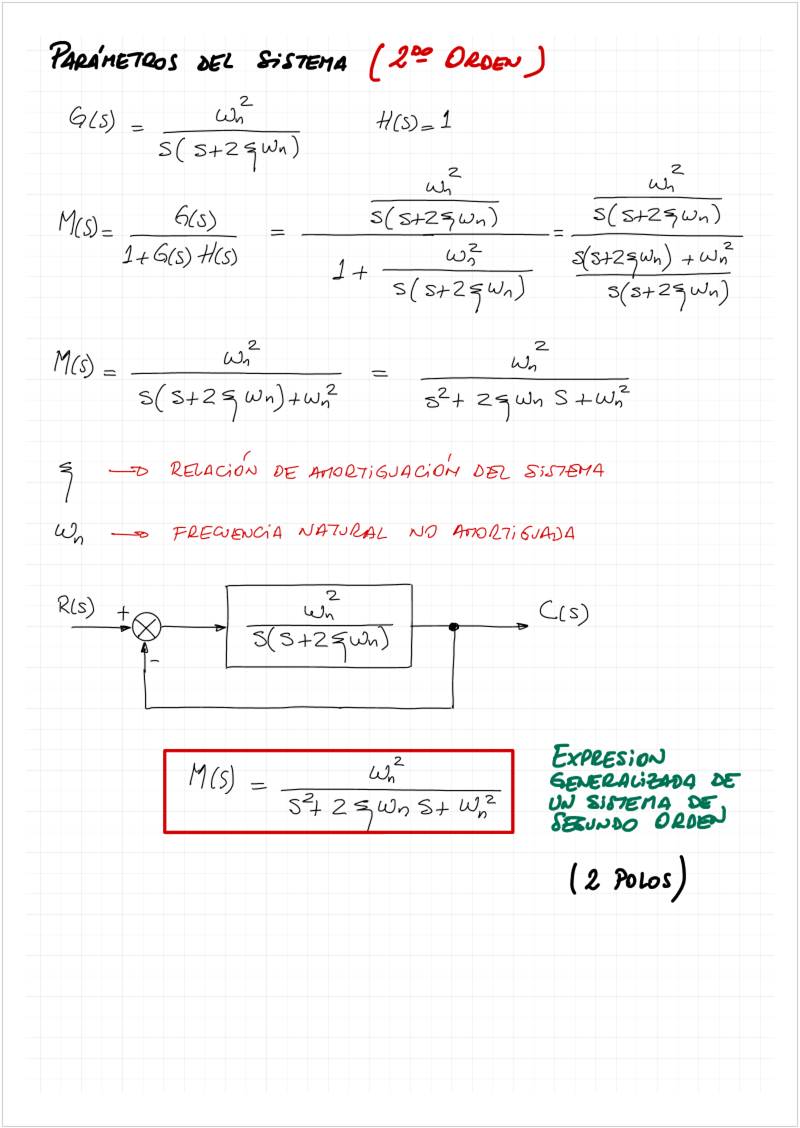 PARÁMETROS DEL SISTEMA (2do ORDEN)
G(s) = ωn² / s(s+2ξωn)    H(s)=1
M(s)= G(s) / 1+G(s)H(s) = ωn² / s(s+2ξωn) / 1+ ωn² / s(s+2ξωn) = ωn² / s(s+2ξωn) / s(s+2ξωn)+ωn² / s(s+2ξωn)
M(s)= ωn² / s(s+2ξωn)+ωn² = ωn² / s²+2ξωn s+ωn²
ξ → RELACIÓN DE AMORTIGUACIÓN DEL SISTEMA
ωn → FRECUENCIA NATURAL NO AMORTIGUADA
R(s) + - ωn² / s(s+2ξωn) C(s)
M(s) = ωn² / s²+2ξωn s+ωn²
EXPRESION
GENERALIZADA DE
UN SISTEMA DE
SEGUNDO ORDEN
(2 POLOS)